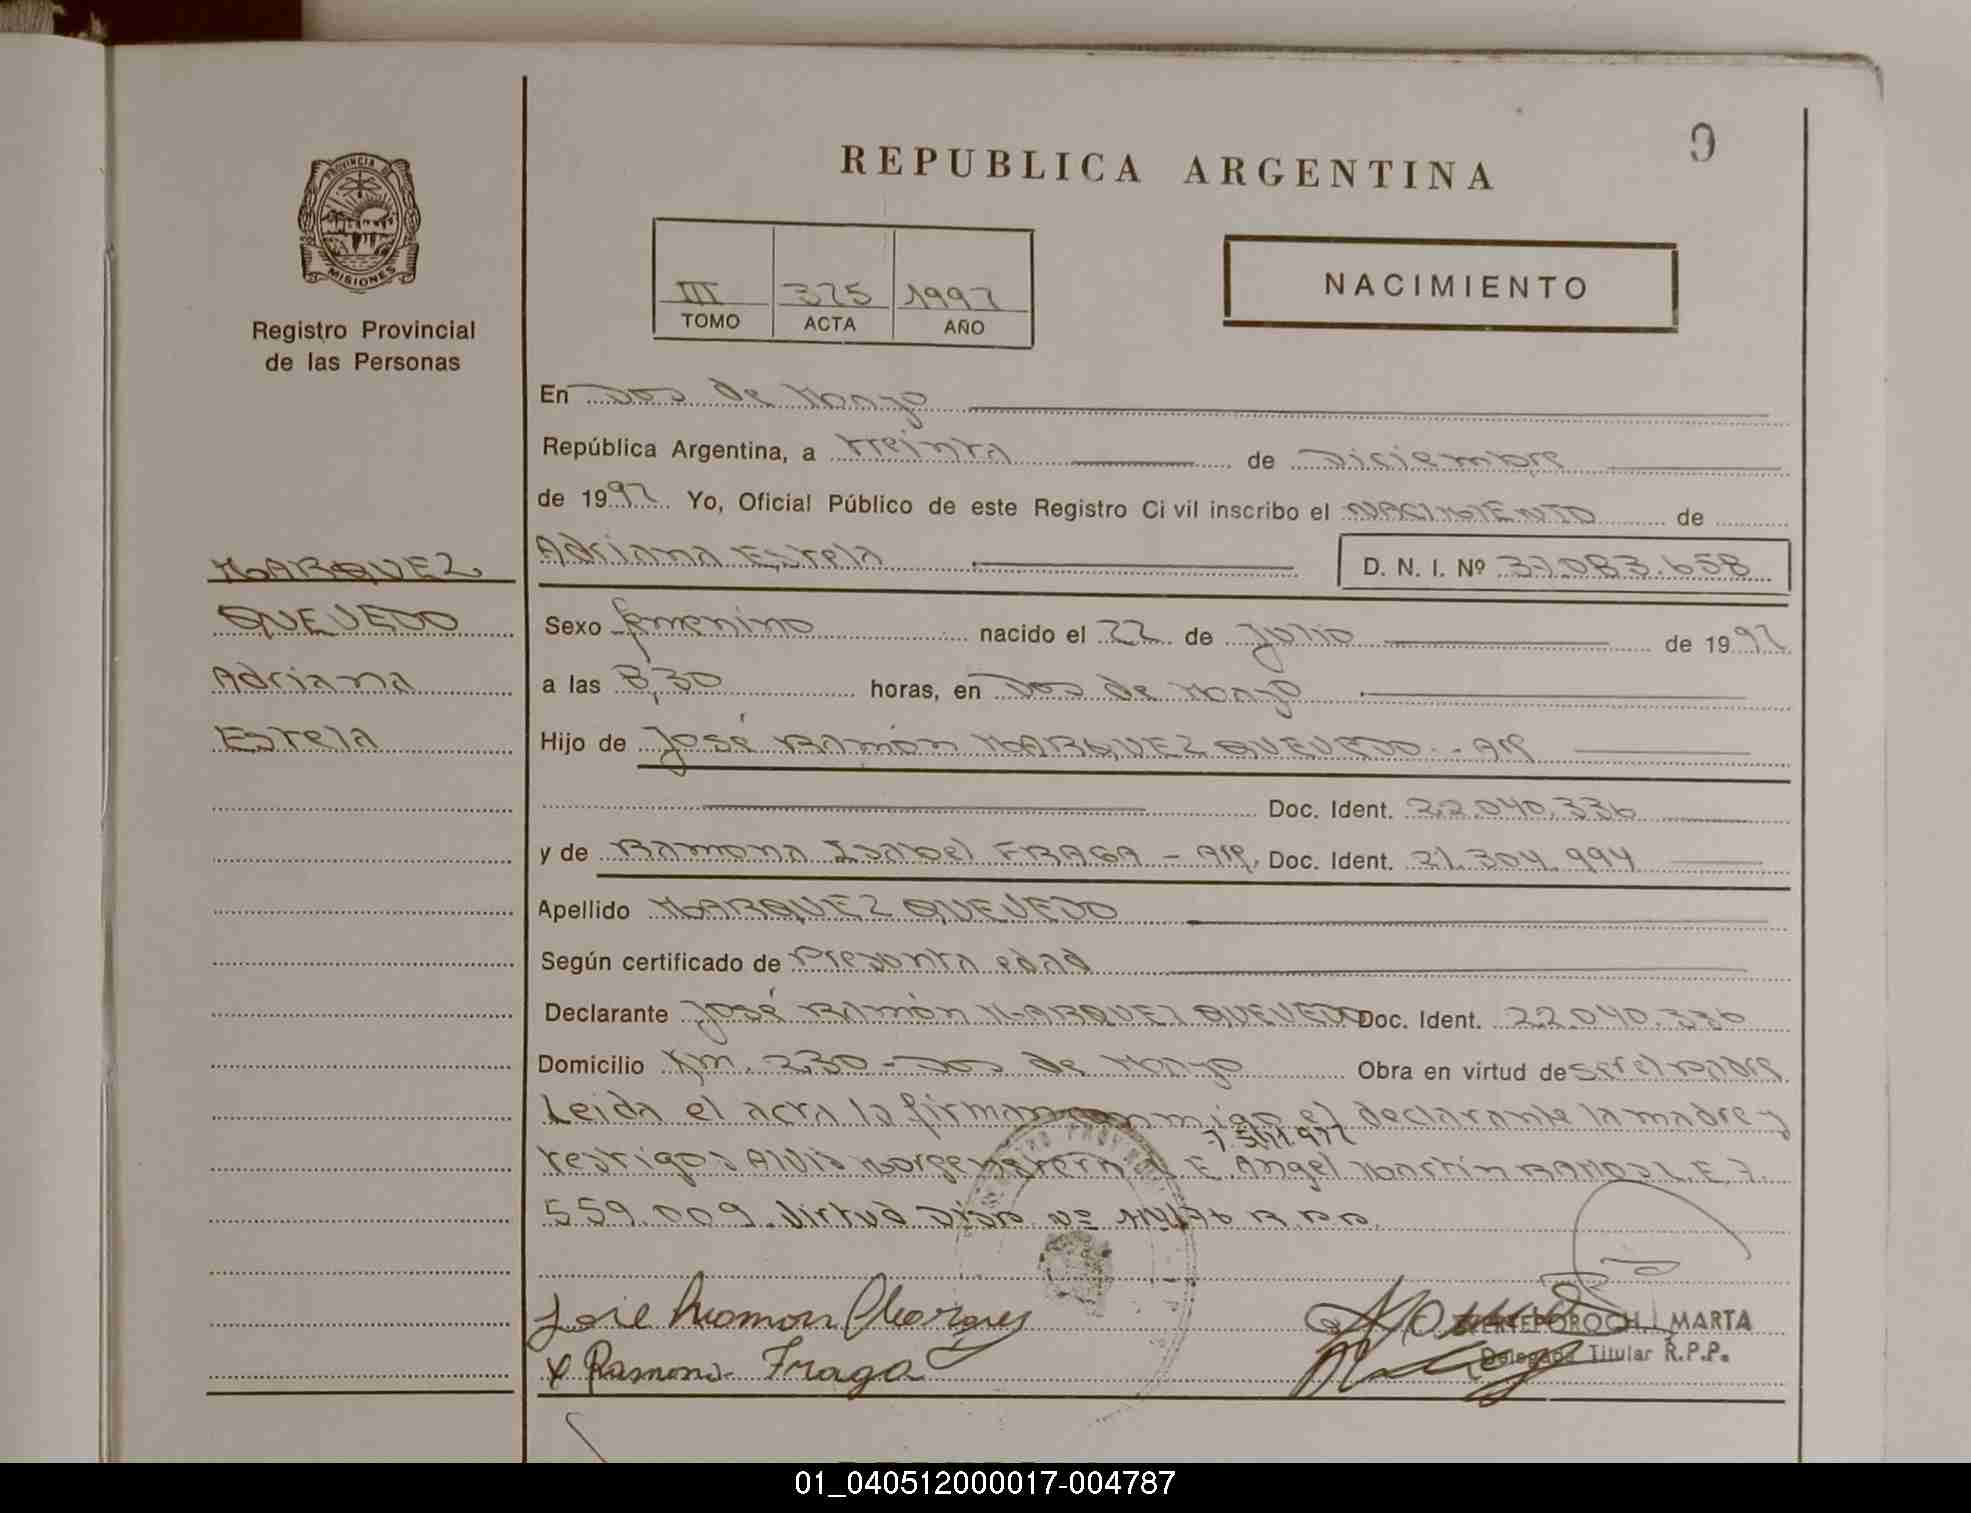 REPUBLICA ARGENTINA
9
PROVINCIA DE
MISIONES
Registro Provincial
de las Personas
III 325 1997
TOMO ACTA AÑO
NACIMIENTO
En Dos de Mayo
República Argentina, a treinta de Diciembre
de 1997 Yo, Oficial Público de este Registro Civil inscribo el NACIMIENTO de
Adriana Estela D. N. I. Nº 37.083.658
MARQUEZ
QUEVEDO
Adriana
Estela
Sexo femenino nacido el 22 de Julio de 1992
a las 8,30 horas, en Dos de Mayo
Hijo de José Ramón MARQUEZ QUEVEDO - Arg
Doc. Ident. 22.040.336
y de Ramona Isabel FRAGA - Arg. Doc. Ident. 21.304.994
Apellido MARQUEZ QUEVEDO
Según certificado de Presunta edad
Declarante José Ramón MARQUEZ QUEVEDO Doc. Ident. 22.040.336
Domicilio Km. 230 - Dos de Mayo Obra en virtud de ser el padre
Leida el acta la firman conmigo el declarante la madre y
testigos Alvis Morgenstern L.E. Angel Martín RAMOS L.E. 7.
559.009. Virtud Disp Nº R.P.P.
José Ramon Marques
x Ramona Fraga
MARTA
Delegada Titular R.P.P.
01_040512000017-004787